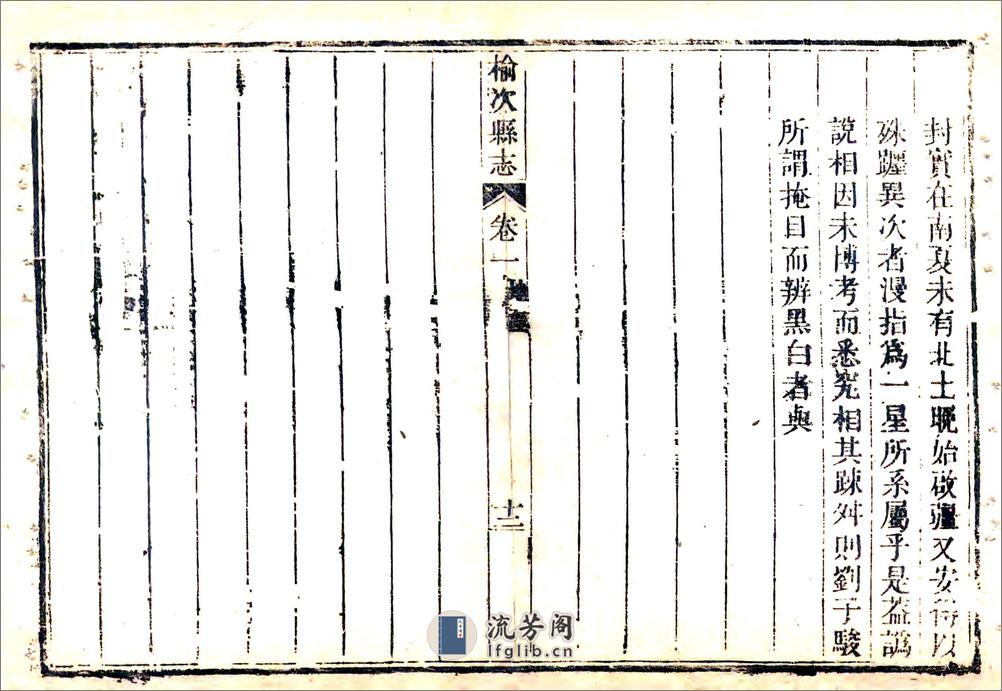 封實在南夋未有北土晚始啟疆又安得以
殊疆異次者漫指爲一星所系屬乎是葢譌
說相因未博考而悉究相其疎舛則劉子駿
所謂掩目而辨黑白者與
榆次縣志 卷一 十二
流芳阁
lfglib.com